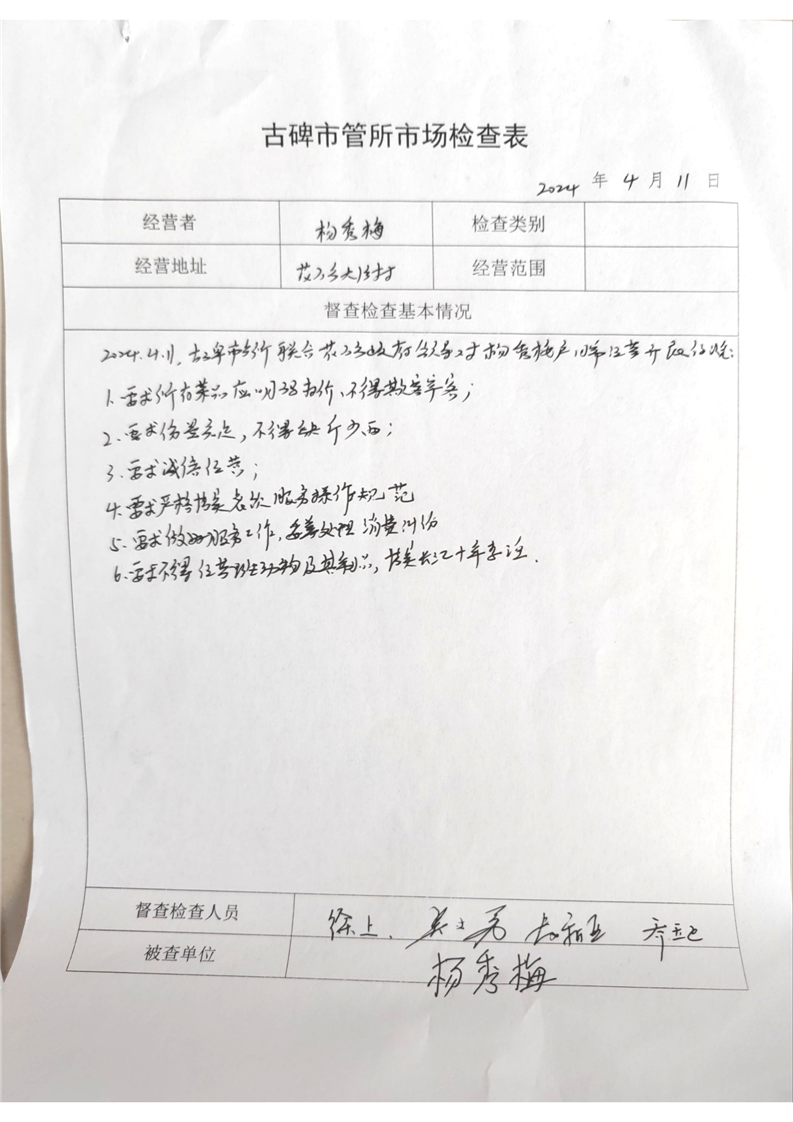 古碑市管所市场检查表
2024 年 4 月 11 日
经营者 杨秀梅 检查类别
经营地址 经营范围
督查检查基本情况
2024.4.11. 古碑市管所联合 政府 对杨秀梅户 经营开
1. 要求所有菜品应明码标价,不得欺客宰客;
2. 要求份量充足,不得缺斤少两;
3. 要求诚信经营;
4. 要求严格 服务操作规范
5. 要求做好服务工作,妥善处理消费纠纷
6. 要求不得经营野生动物及其制品, 长江十年禁渔.
督查检查人员 徐上.
被查单位 杨秀梅